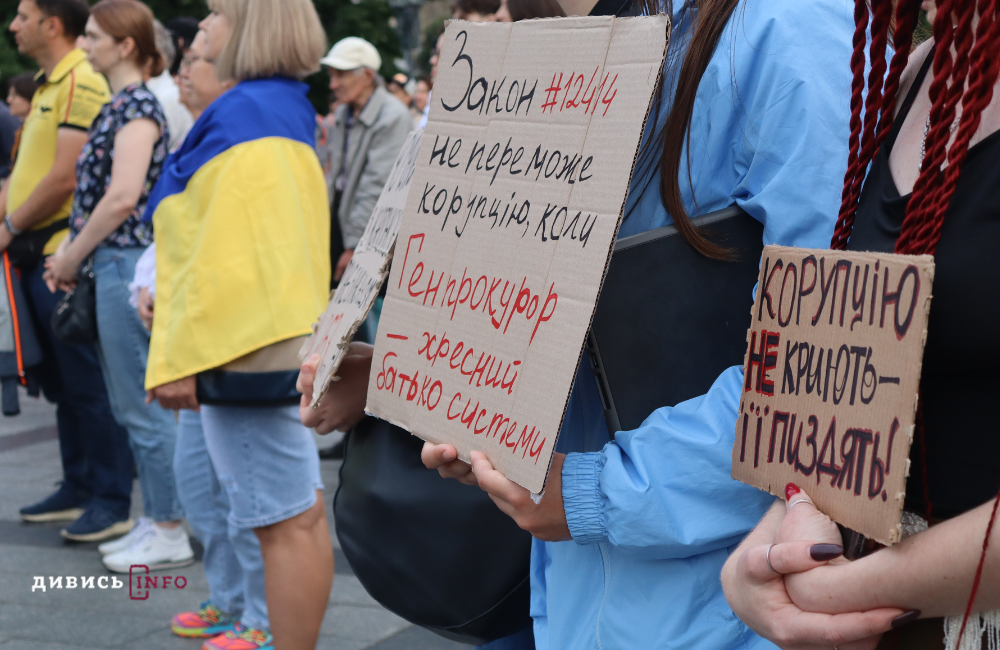 Закон #12414
не переможе
корупцію, коли
Генпрокурор
– хресний
батько системи
КОРУПЦІЮ
НЕ КРИЮТЬ –
ЇЇ ПИЗДЯТЬ!
ДИВИСЬ INFO